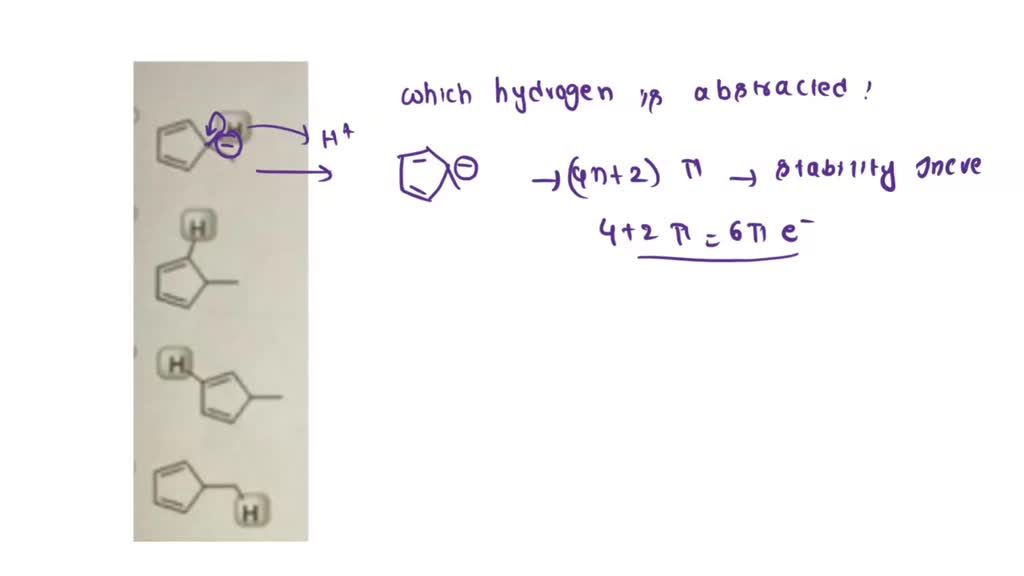 which hydrogen is abstracted !
H
H+
⊖
⊖ → (4n+2) π → stability Incre
4+2 π = 6π e⁻
H
H
H